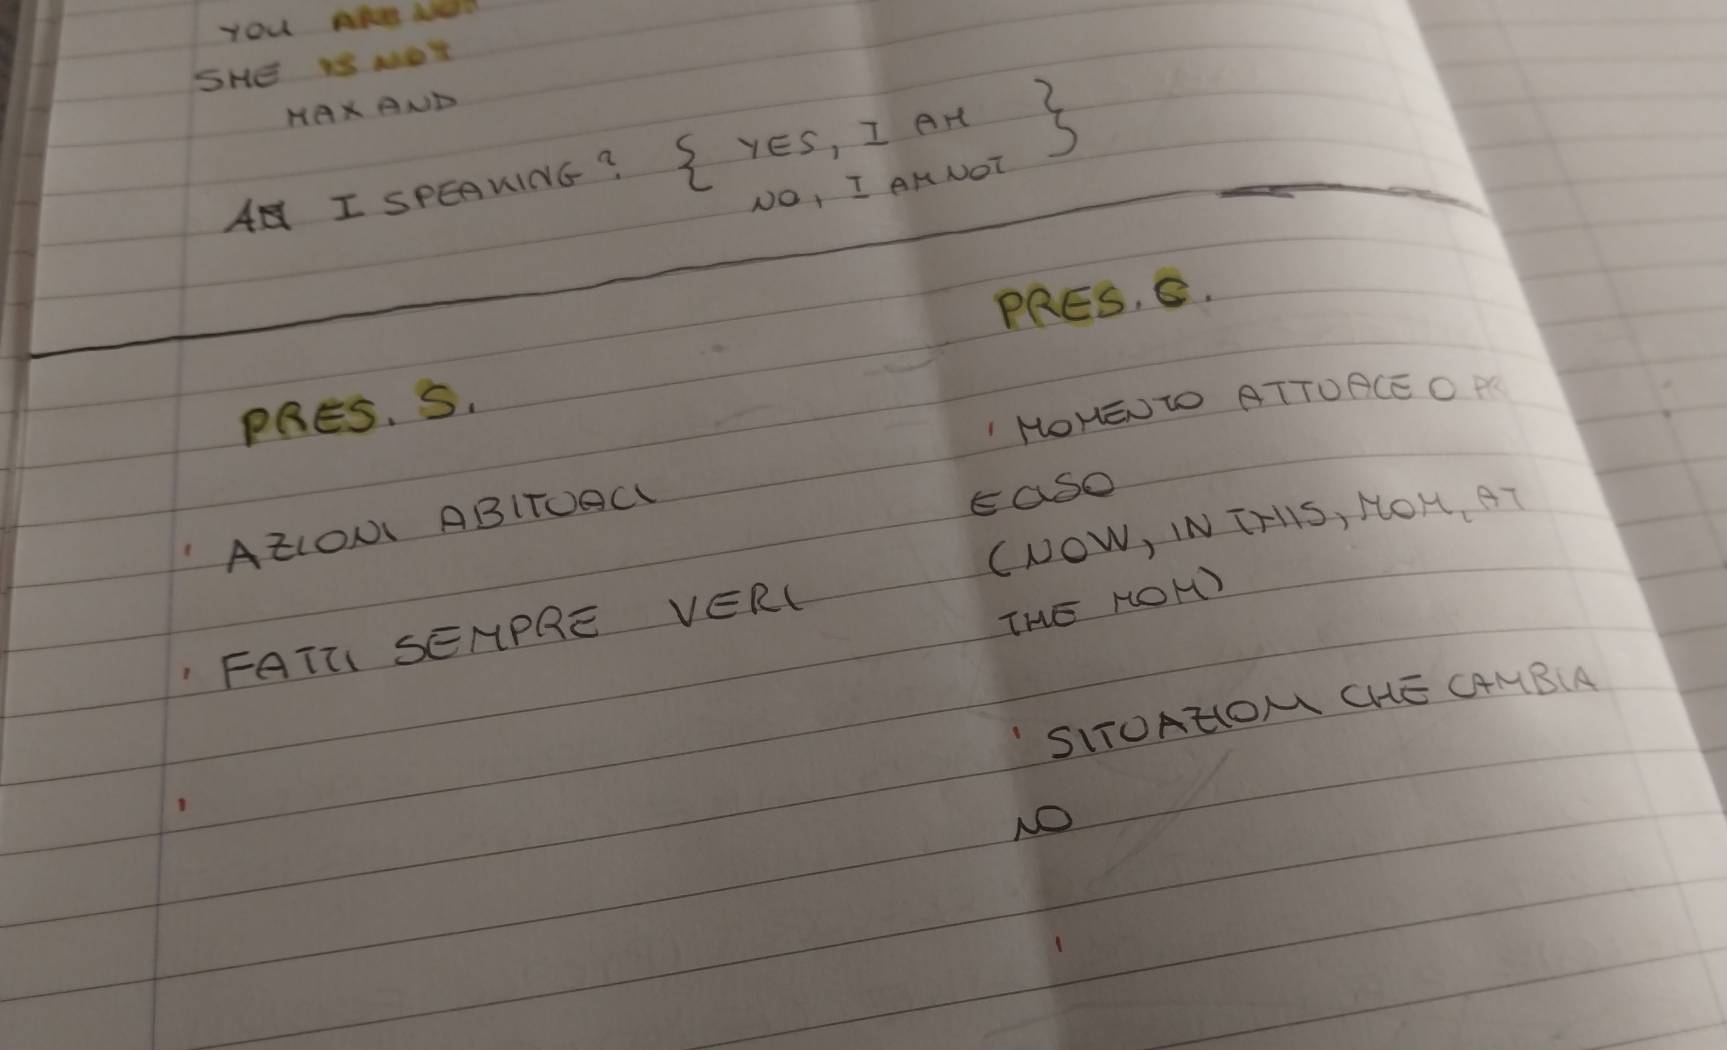 YOU ARE NOT
SHE IS NOT
MAX AND
AM I SPEAKING? { YES, I AM }
NO, I AM NOT
PRES. S.
AZIONI ABITUALI
FATTI SEMPRE VERI
PRES. C.
MOMENTO ATTUALE O
(NOW, IN THIS, MOM, AT
THE MOM)
SITUAZIONI CHE CAMBIA
NO